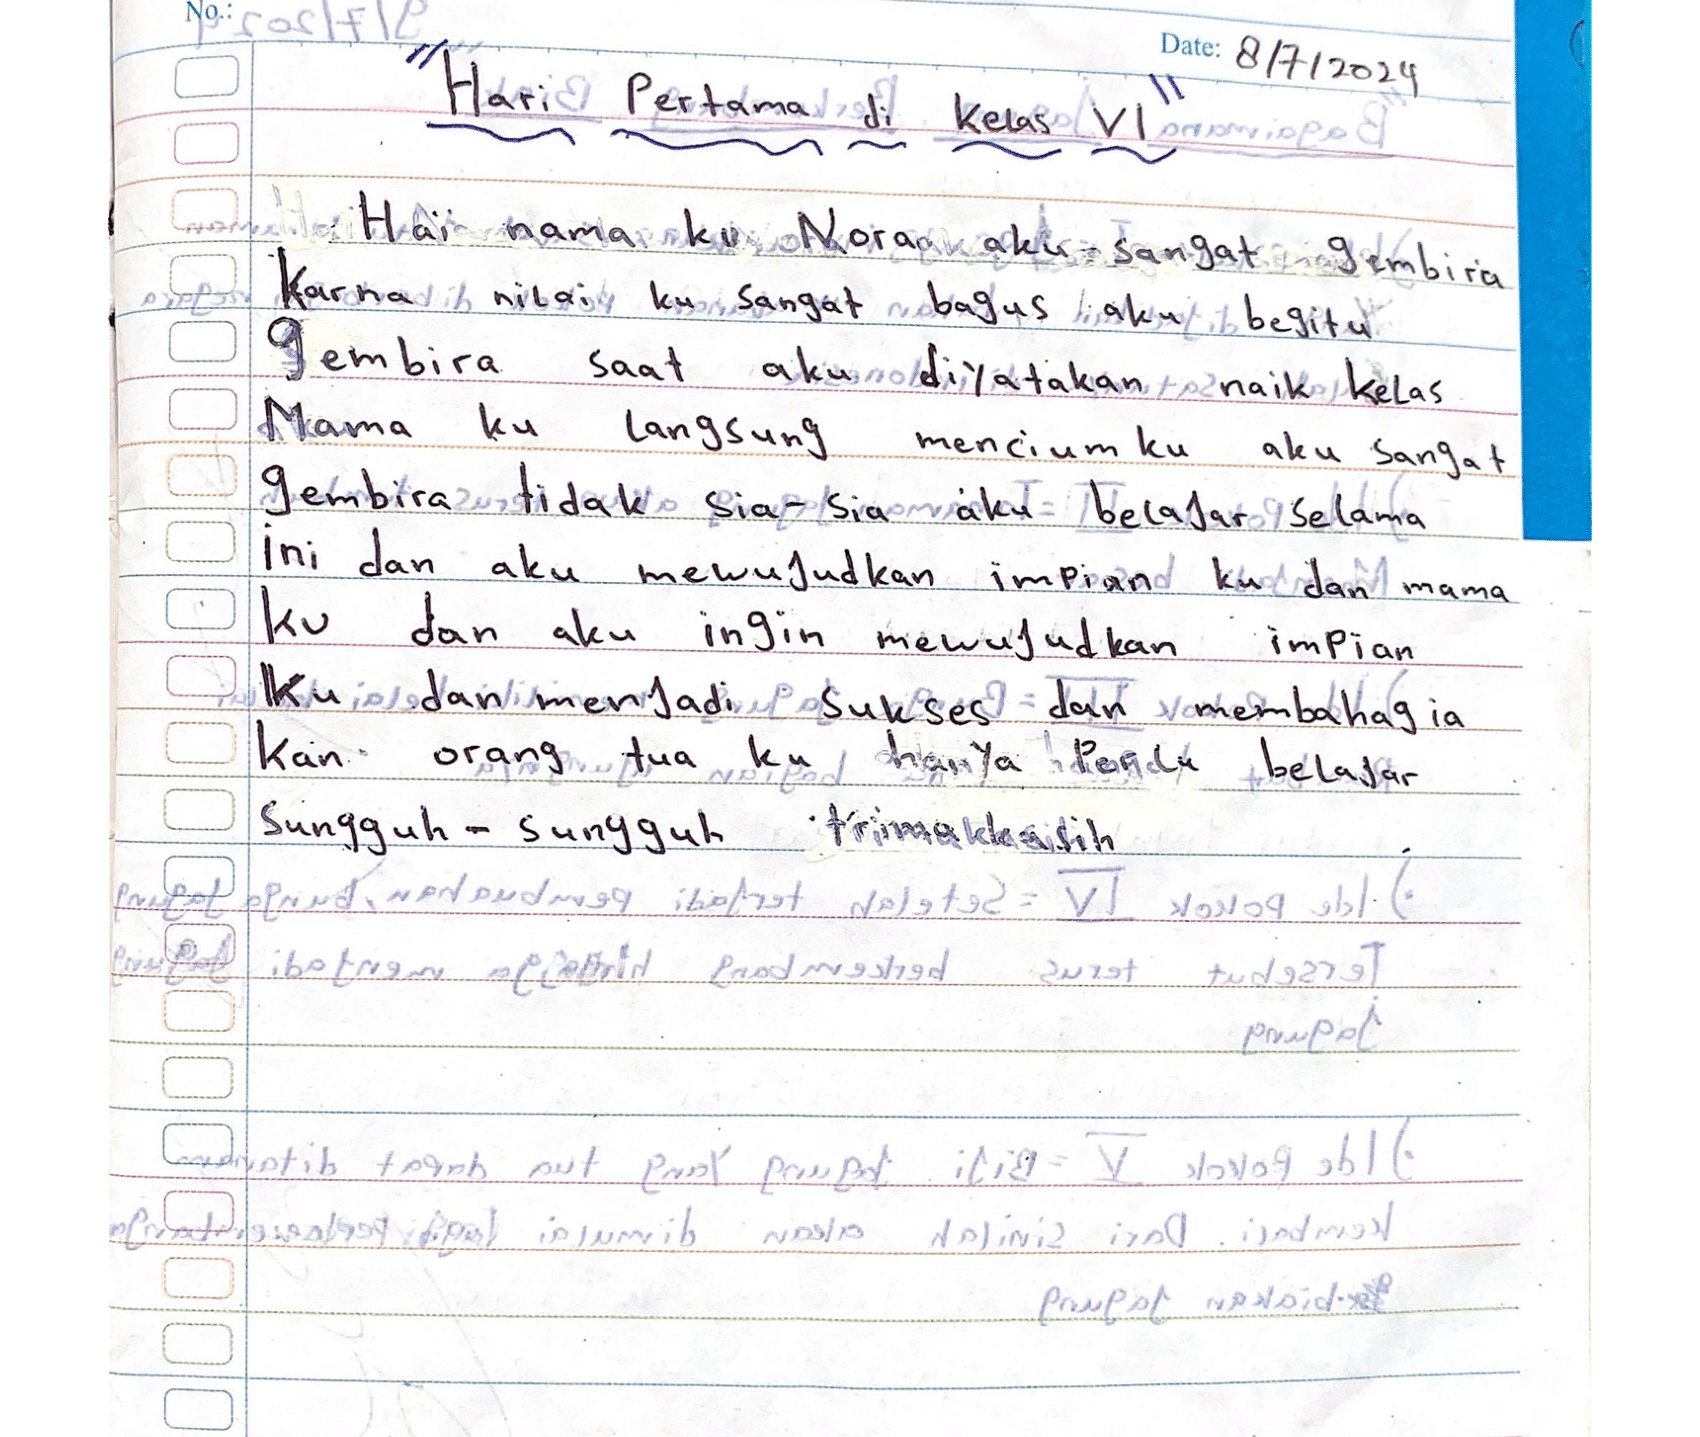 No.:
Date: 8/7/2024
"Hari Pertama di Kelas VI"
Hai nama ku Nora aku sangat gembira
Karna nilai ku sangat bagus aku begitu
gembira saat aku diyatakan naik kelas
Mama ku langsung menciumku aku sangat
gembira tidak sia-sia aku belajar selama
ini dan aku mewujudkan impian ku dan mama
ku dan aku ingin mewujudkan impian
Ku dan menjadi sukses dan membahagia
kan orang tua ku hanya Perlu belajar
sungguh-sungguh trimakkasih